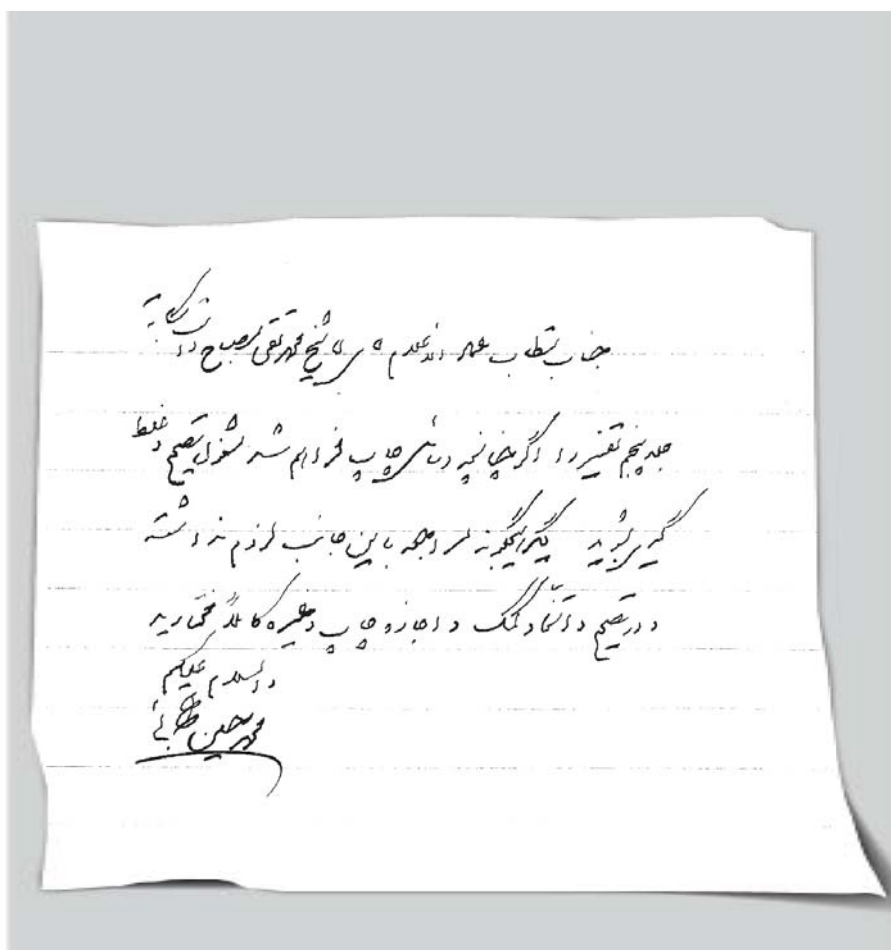 جناب مستطاب عماد الاعلام آقای شیخ محمد تقی مصباح دامت برکاته
جلد پنجم تفسیر را اگر چنانچه وسائل چاپ فراهم شد مشغول تصحیح و غلط
گیری بشوید هیچگونه مراجعه باین جانب لزوم نداشته
و در تصحیح و انتقاد و کمک و اجازه چاپ و غیره کاملاً مختارید
والسلام علیکم
محمد حسین طباطبائی